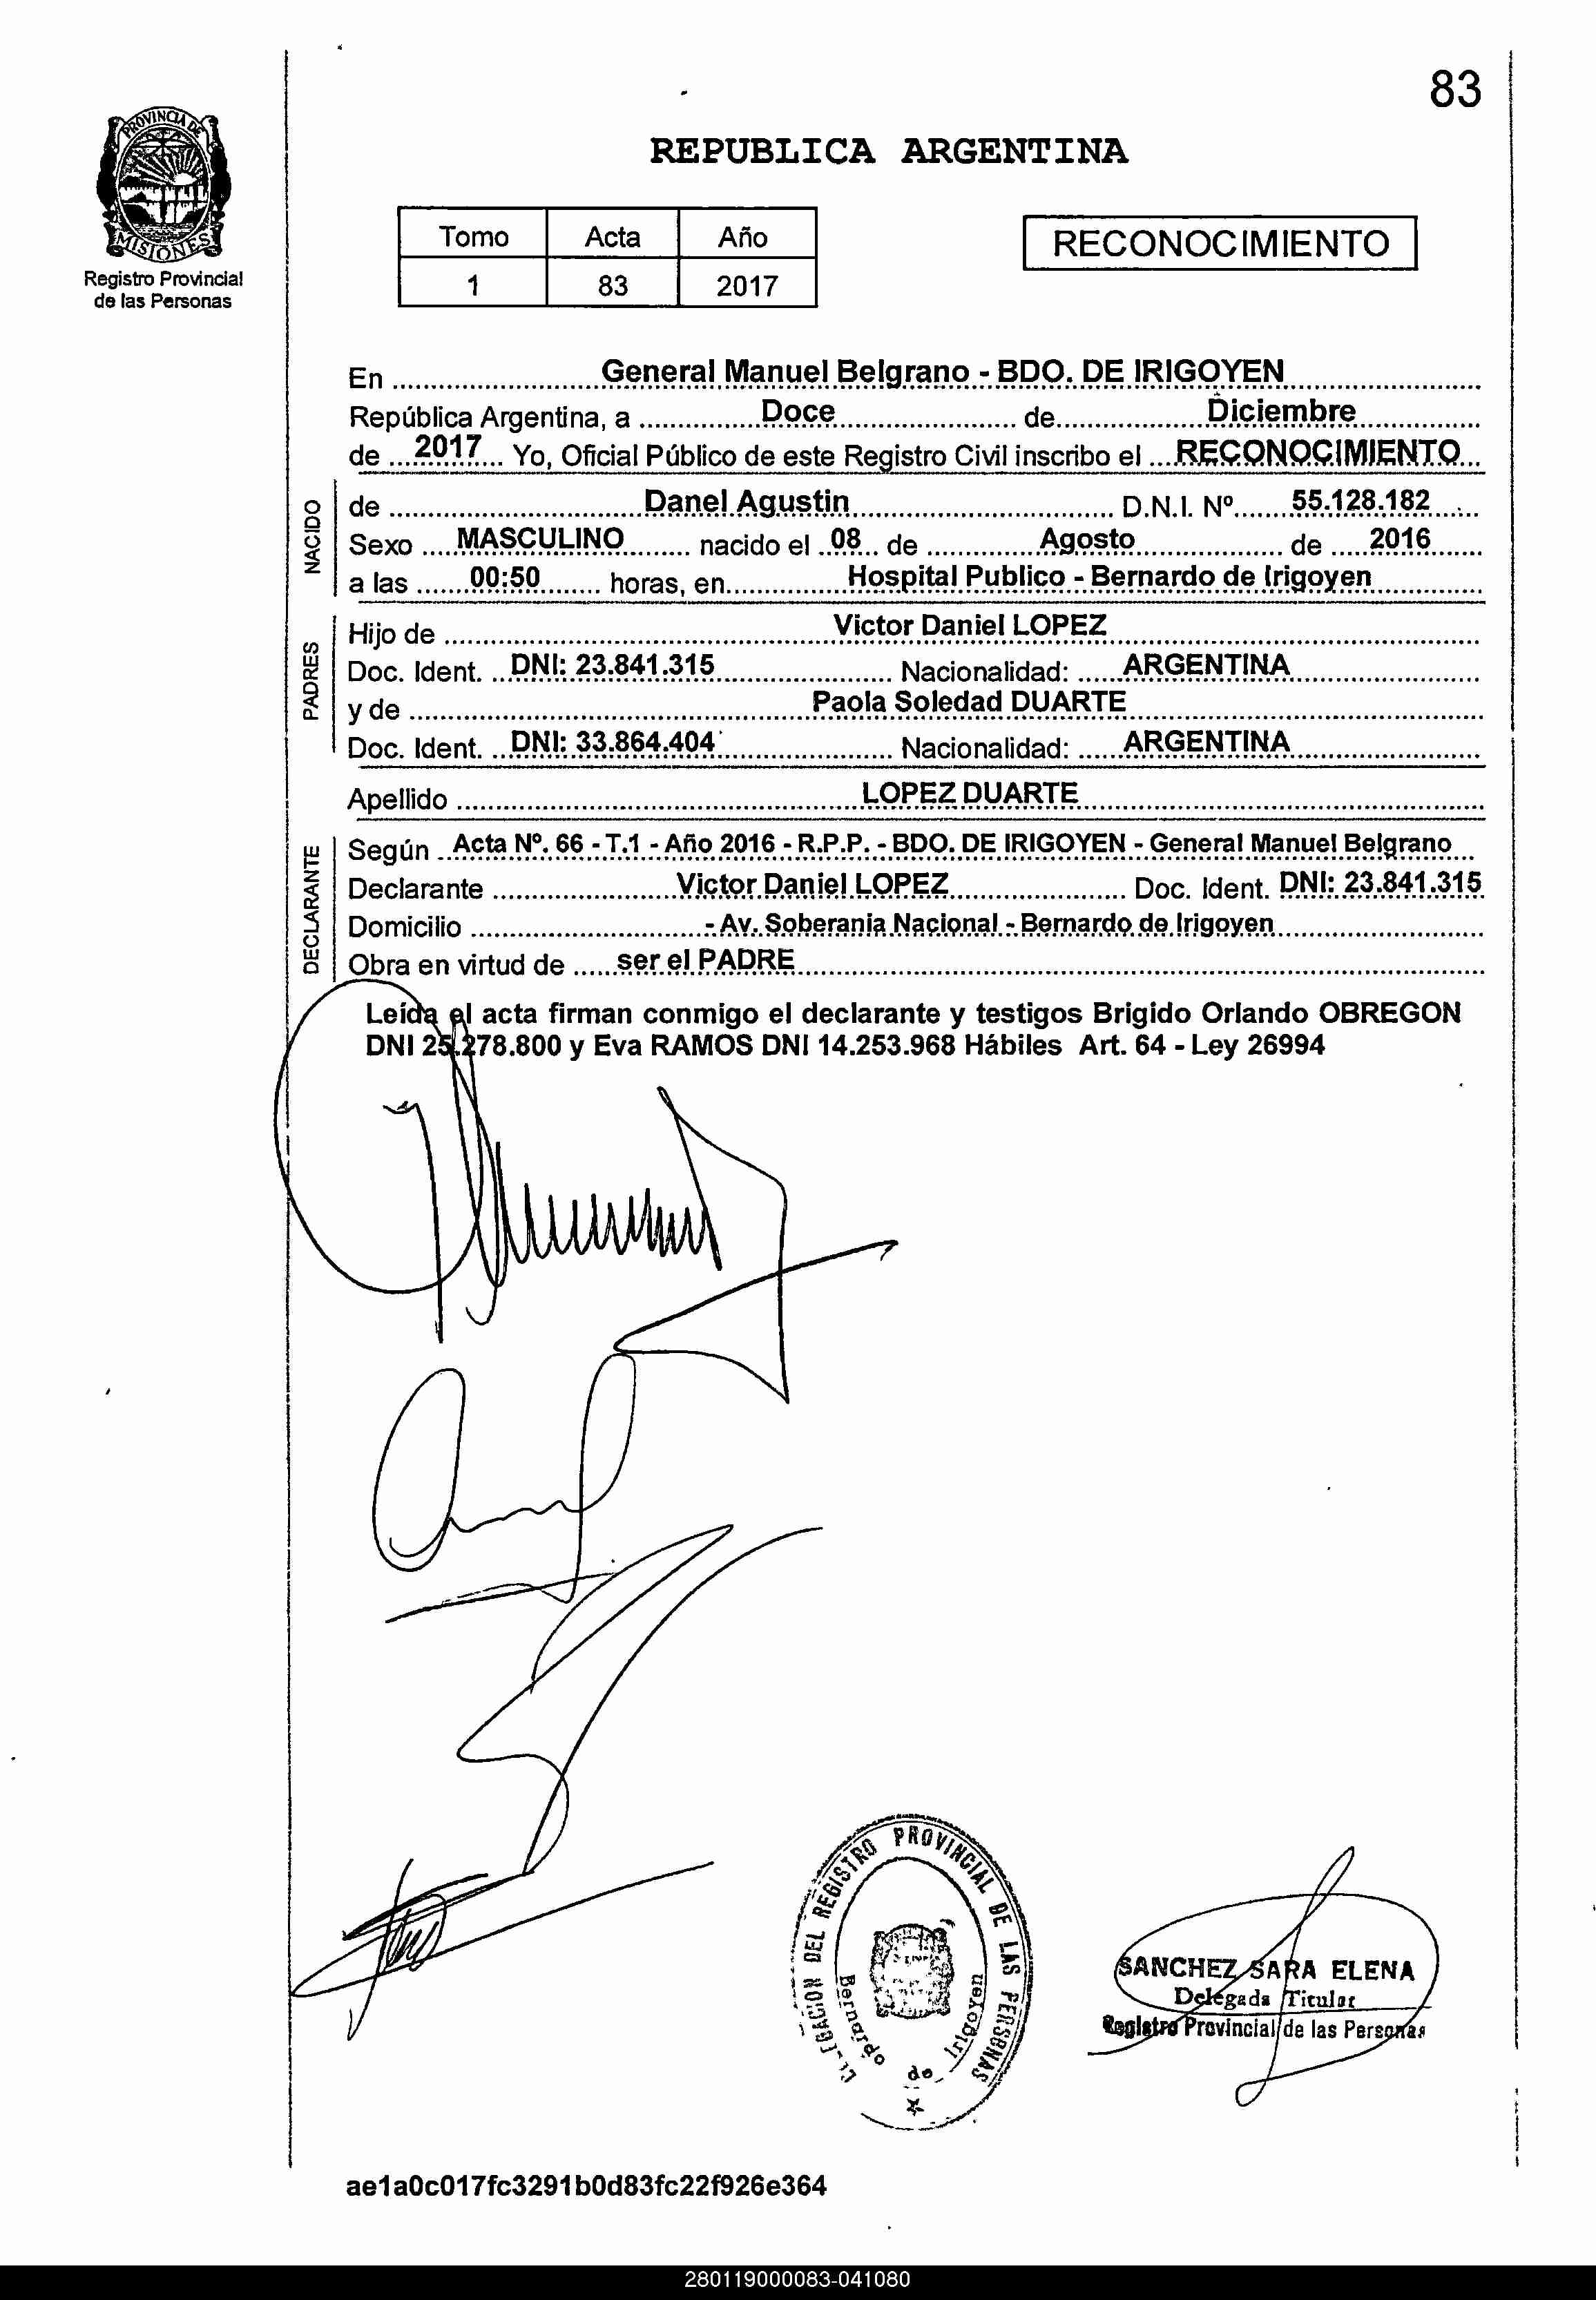 83
PROVINCIA DE
MISIONES
Registro Provincial
de las Personas
REPUBLICA ARGENTINA
Tomo Acta Año
1 83 2017
RECONOCIMIENTO
En General Manuel Belgrano - BDO. DE IRIGOYEN
República Argentina, a Doce de Diciembre
de 2017 Yo, Oficial Público de este Registro Civil inscribo el RECONOCIMIENTO
NACIDO
de Danel Agustin D.N.I. Nº 55.128.182
Sexo MASCULINO nacido el 08 de Agosto de 2016
a las 00:50 horas, en Hospital Publico - Bernardo de Irigoyen
PADRES
Hijo de Victor Daniel LOPEZ
Doc. Ident. DNI: 23.841.315 Nacionalidad: ARGENTINA
y de Paola Soledad DUARTE
Doc. Ident. DNI: 33.864.404 Nacionalidad: ARGENTINA
Apellido LOPEZ DUARTE
DECLARANTE
Según Acta Nº. 66 - T.1 - Año 2016 - R.P.P. - BDO. DE IRIGOYEN - General Manuel Belgrano
Declarante Victor Daniel LOPEZ Doc. Ident. DNI: 23.841.315
Domicilio - Av. Soberania Nacional - Bernardo de Irigoyen
Obra en virtud de ser el PADRE
Leída el acta firman conmigo el declarante y testigos Brigido Orlando OBREGON
DNI 25.278.800 y Eva RAMOS DNI 14.253.968 Hábiles Art. 64 - Ley 26994
DEL REGISTRO PROVINCIAL DE LAS PERSONAS
Bernardo de Irigoyen
SANCHEZ SARA ELENA
Delegada Titular
Registro Provincial de las Personas
ae1a0c017fc3291b0d83fc22f926e364
280119000083-041080